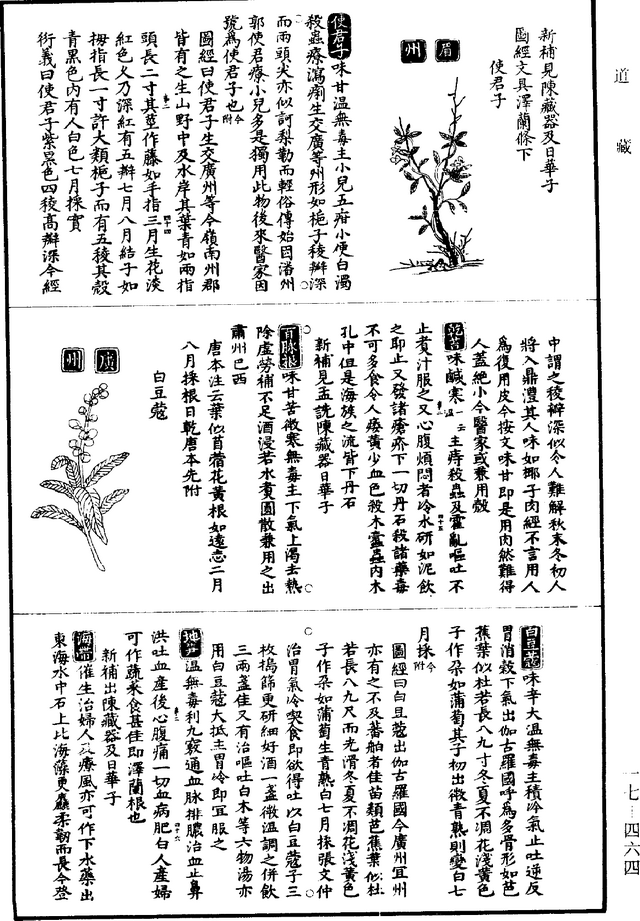 道藏
新補見陳藏器及日華子
圖經文具澤蘭條下
使君子
眉州
使君子味甘溫無毒主小兒五疳小便白濁
殺蟲療瀉痢生交廣等州形如梔子稜瓣深
而兩頭尖亦似訶梨勒而輕俗傳始因潘州
郭使君療小兒多是獨用此物後來醫家因
號為使君子也今附
圖經曰使君子生交廣州等今嶺南州郡
皆有之生山野中及水岸其葉青如兩指
頭長二寸其莖作藤如手指三月生花淡
紅色久乃深紅有五瓣七月八月結子如
拇指長一寸許大類梔子而有五稜其殼
青黑色內有人白色七月採實
衍義曰使君子紫黑色四稜高瓣深今經
中謂之稜瓣深似令人難解秋末冬初人
將入鼎澧其人味如椰子肉經不言用人
為復用皮今按文味甘即是用肉然難得
人蓋絕小今醫家或兼用殼
味鹹寒一云溫主痔殺蟲及霍亂嘔吐不
止煮汁服之又心腹煩悶者冷水研如泥飲
之即止又發諸瘡疥下一切丹石殺諸藥毒
不可多食令人痿黃少血色殺木蠹蟲內木
孔中但是海族之流皆下丹石
新補見孟詵陳藏器日華子
百脉根味甘苦微寒無毒主下氣止渴去熱
除虛勞補不足酒浸若水煮圓散兼用之出
肅州巴西
唐本注云葉似苜蓿花黃根如遠志二月
八月採根日乾唐本先附
白豆蔻
廣州
白豆蔻味辛大溫無毒主積冷氣止吐逆反
胃消穀下氣出伽古羅國呼為多骨形如芭
蕉葉似杜若長八九寸冬夏不凋花淺黃色
子作朵如葡萄其子初出微青熟則變白七
月採今附
圖經曰白豆蔻出伽古羅國今廣州宜州
亦有之不及蕃舶者佳苗類芭蕉葉似杜
若長八九尺而光滑冬夏不凋花淺黃色
子作朵如葡萄生青熟白七月採張文仲
治胃氣冷喫食即欲得吐以白豆蔻子三
枚擣篩更研細好酒一盞微溫調之併飲
三兩盞佳又有治嘔吐白木等六物湯亦
用白豆蔻大抵主胃冷即宜服之
地笋溫無毒利九竅通血脉排膿治血止鼻
洪吐血產後心腹痛一切血病肥白人產婦
可作蔬菜食甚佳即澤蘭根也
新補出陳藏器及日華子
海帶催生治婦人及療風亦可作下水藥出
東海水中石上比海藻更麤柔韌而長今登
一七—四六四